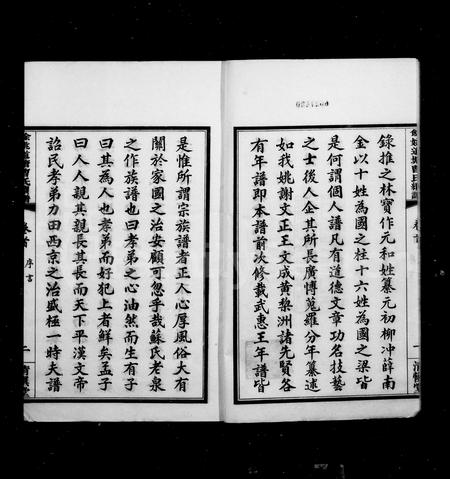 錄推之林寶作元和姓纂元初柳冲薛南
金以十姓為國之柱十六姓為國之梁皆
是何謂個人譜凡有道德文章功名技藝
之士後人企其所長廣博蒐羅分年纂述
如我姚謝文正王文成黃棃洲諸先賢各
有年譜即本譜前次修裁武惠王年譜皆
是惟所謂宗族譜者正人心厚風俗大有
關於家國之治安顧可忽乎哉蘇氏老泉
之作族譜也曰孝弟之心油然而生有子
曰其為人也孝弟而好犯上者鮮矣孟子
曰人人親其親長其長而天下平漢文帝
詔民孝弟力田西京之治盛極一時夫譜
卷首
序言
二